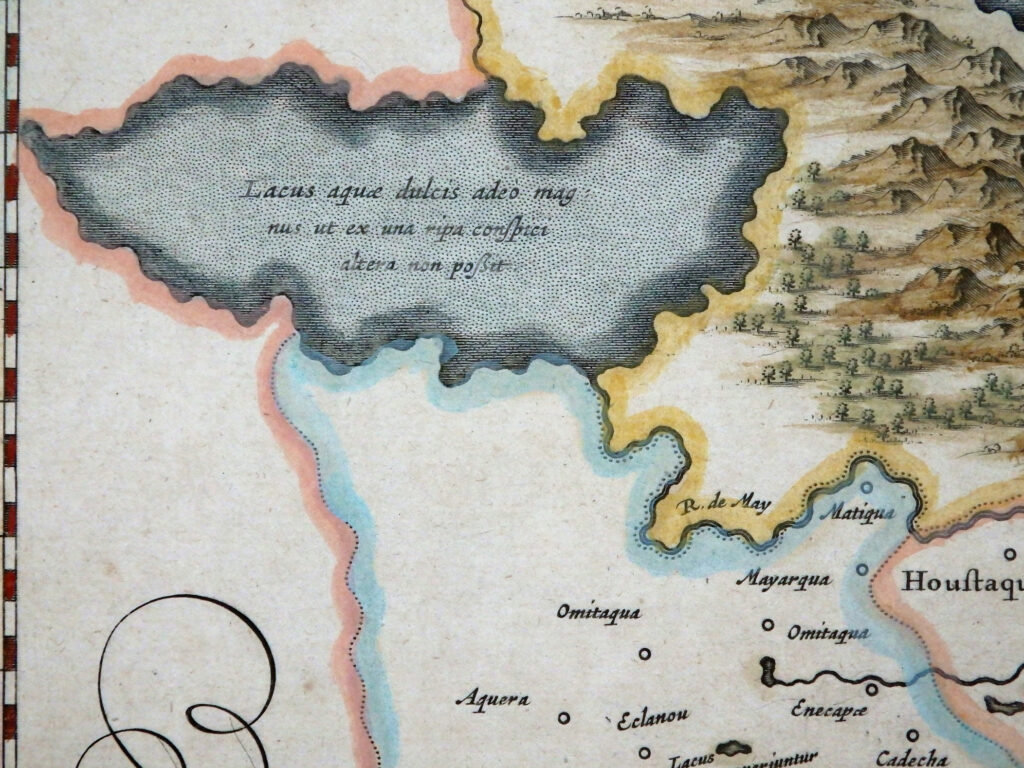 Lacus aquæ dulcis adeo mag
nus ut ex una ripa conſpici
altera non poßit
R. de May
Matiqua
Mayarqua
Houſtaqu
Omitaqua
Omitaqua
Aquera
Eclanou
Enecapæ
Lacus
Cadecha